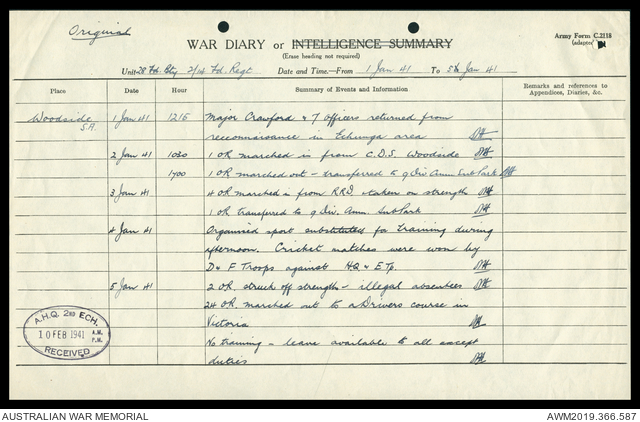 Original
WAR DIARY or INTELLIGENCE SUMMARY
(Erase heading not required)
Army Form C.2118
(adapted)
Unit 28 Fd. Bty 2/14 Fd. Regt Date and Time.—From 1 Jan 41 To 5th Jan 41
Place Date Hour Summary of Events and Information Remarks and references to
Appendices, Diaries, &c.
Woodside 1 Jan 41 1215 Major Crawford & 7 officers returned from
S.A. reconnaisance in Echunga area
2 Jan 41 1030 1 OR marched in from C.D.S. Woodside
1700 1 OR marched out - transferred to 9 Div. Amm. Sub Park
3 Jan 41 4 OR marched in from RRD & taken on strength
1 OR transferred to 9 Div. Amm. Sub Park
4 Jan 41 Organised sport substituted for training during
afternoon. Cricket matches were won by
D & F Troops against HQ & E Tp.
5 Jan 41 2 OR struck off strength - illegal absentees
24 OR. marched out to a Drivers course in
Victoria
No training - leave available to all except
duties
A.H.Q. 2ND ECH.
10 FEB 1941 A.M.
P.M.
RECEIVED
AUSTRALIAN WAR MEMORIAL AWM2019.366.587